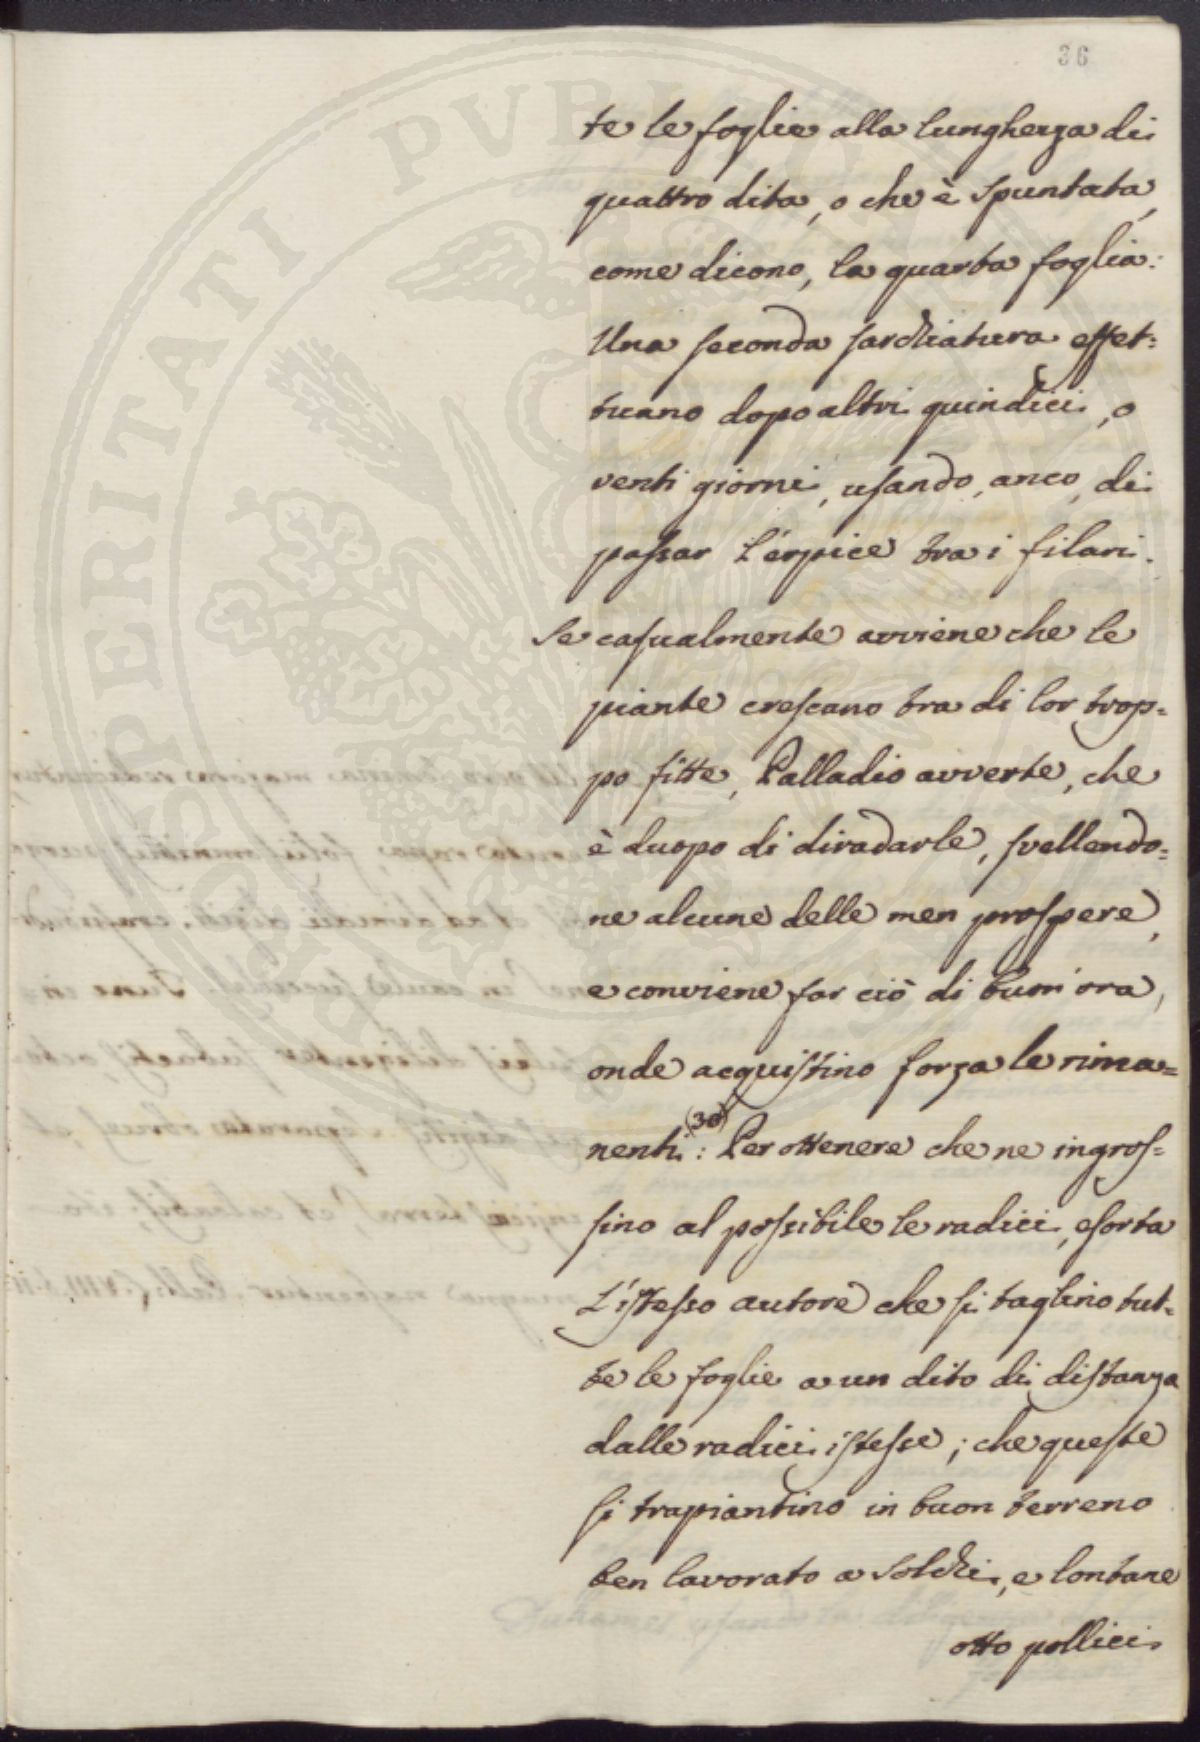 36
te le foglie alla lunghezza di
quattro dita, o che è spuntata,
come dicono, la quarta foglia:
Una seconda sarchiatura effet=
tuano dopo altri quindici, o
venti giorni, usando, anco, di
passar l'erpice tra i filari.
Se casualmente avviene che le
piante crescano tra di lor trop=
po fitte, Palladio avverte, che
è duopo di diradarle, svellendo=
ne alcune delle men prospere,
e conviene far ciò di buon'ora,
onde acquistino forza le rima=
nenti (30): Per ottenere che ne ingros=
sino al possibile le radici, esorta
l'istesso autore che si taglino tut=
te le foglie a un dito di distanza
dalle radici istesse; che queste
si trapiantino in buon terreno
ben lavorato a solchi, e lontane
otto pollici
PROSPERITATI PUBLICAE